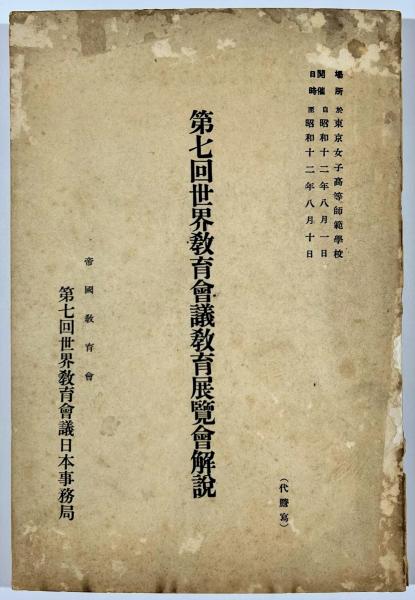 場所 於東京女子高等師範學校
開催 自昭和十二年八月一日
日時 至昭和十二年八月十日
第七回世界敎育會議敎育展覽會解說
(代謄寫)
帝國敎育會
第七回世界敎育會議日本事務局